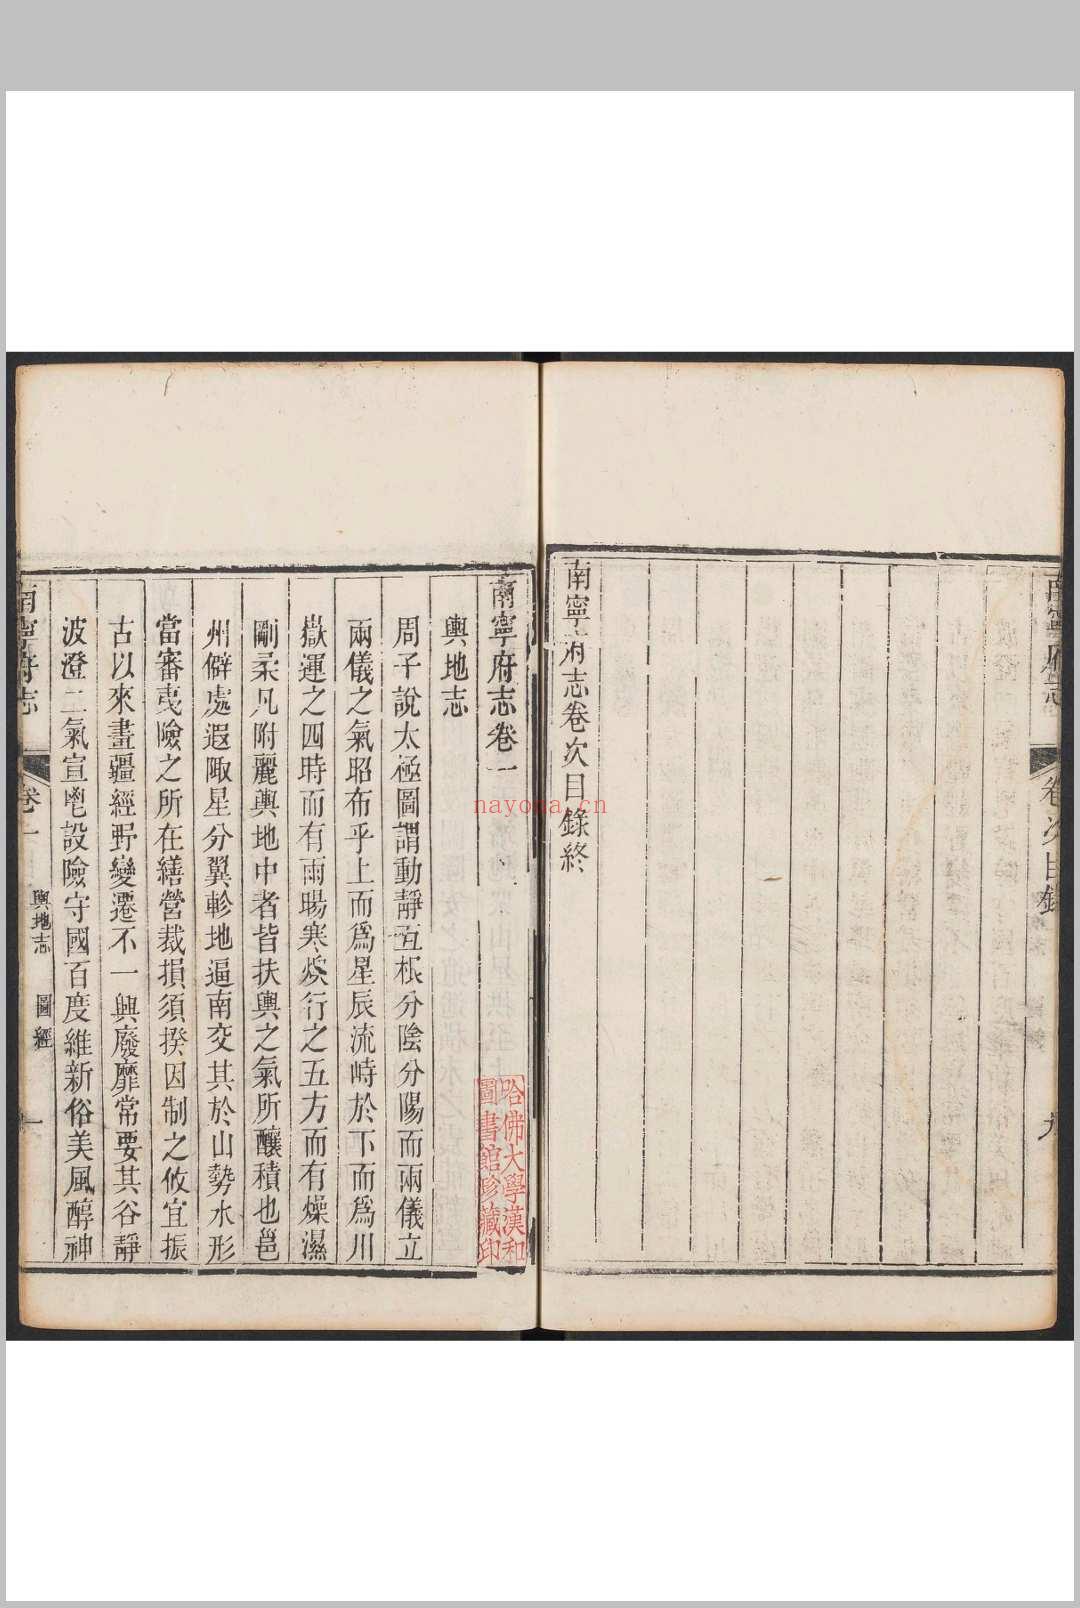 南寧府志
卷次目錄
九
南寧府志卷次目錄終
南寧府志卷一
輿地志
周子說太極圖謂動靜互根分陰分陽而兩儀立
兩儀之氣昭布乎上而為星辰流峙於下而為川
嶽運之四時而有雨暘寒燠行之五方而有燥濕
剛柔凡附麗輿地中者皆扶輿之氣所釀積也邕
州僻處遐陬星分翼軫地逼南交其於山勢水形
當審夷險之所在繕營裁損須揆因制之攸宜振
古以來畫疆經野變遷不一興廢靡常要其谷靜
波澄二氣宣鬯設險守國百度維新俗美風醇神
南寧府志
卷一
輿地志
圖經
一
哈佛大學漢和
圖書館珍藏印
nayona.cn